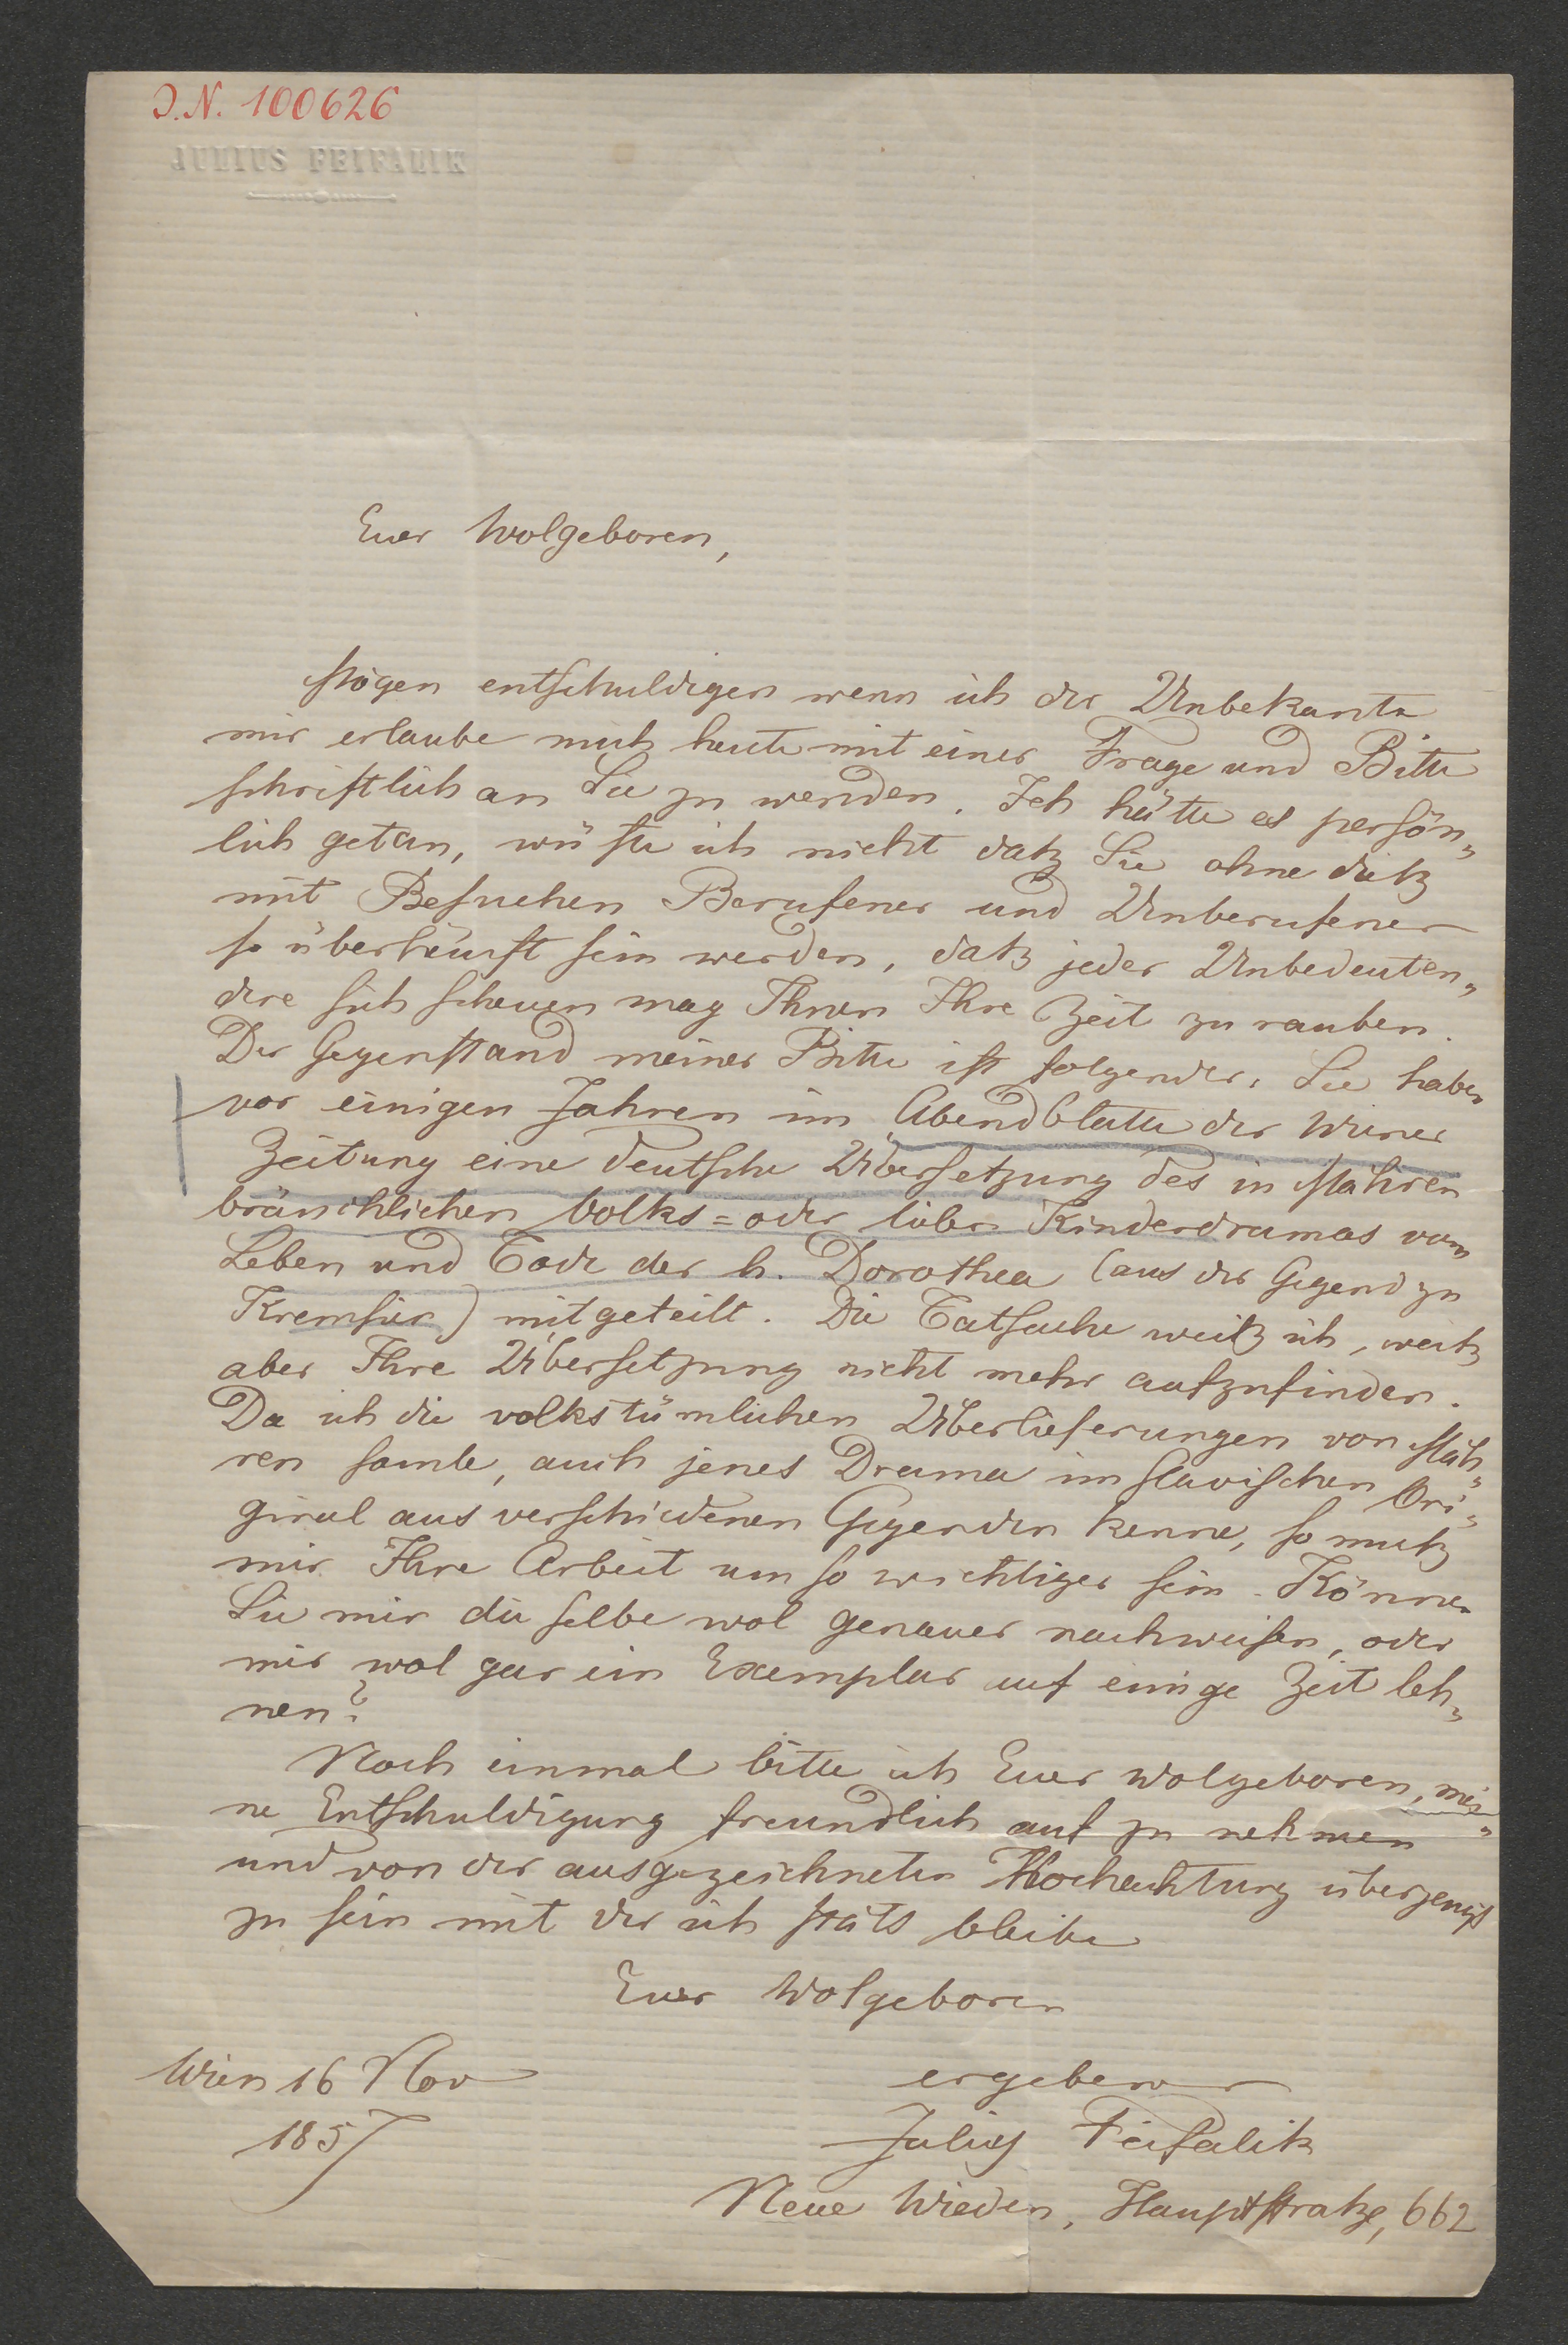 I.N. 100626
JULIUS FEIFALIK
Euer Wolgeboren,
Mögen entschuldigen wenn ich der Unbekante
mir erlaube mich heute mit einer Frage und Bitte
schriftlich an Sie zu wenden. Ich hätte es persön„
lich getan, wüste ich nicht daß Sie ohne dieß
mit Besuchen Berufener und Unberufener
so überheuft sein werden, daß jeder Unbedeuten„
dere sich scheuen mag Ihnen Ihre Zeit zu rauben.
Der Gegenstand meiner Bitte ist folgender: Sie haben
vor einigen Jahren im Abendblatte der Wiener
Zeitung eine deutsche Übersetzung des in Mähren
bräuchlichen Volks= oder lieber Kinderdramas vom
Leben und Tode der h. Dorothea (aus der Gegend zu
Kremsier) mitgeteilt. Die Tatsache weiß ich, weiß
aber Ihre Übersetzung nicht mehr aufzufinden.
Da ich die volkstümlichen Überlieferungen von Mäh„
ren samle, auch jenes Drama im slavischen Ori„
ginal aus verschiedenen Gegenden kenne, so muß
mir Ihre Arbeit um so wichtiger sein. Können
Sie mir die selbe wol genauer nachweisen, oder
mir wol gar ein Exemplar auf einige Zeit leh„
nen?
Noch einmal bitte ich Euer Wolgeboren, mei„
ne Entschuldigung freundlich auf zu nehmen
und von der ausgezeichneten Hochachtung überzeugt
zu sein mit der ich stäts bleibe
Euer Wolgeboren
ergebener
Wien 16 Nov
1857
Julius Feifalik
Neue Wieden, Hauptstraße, 662